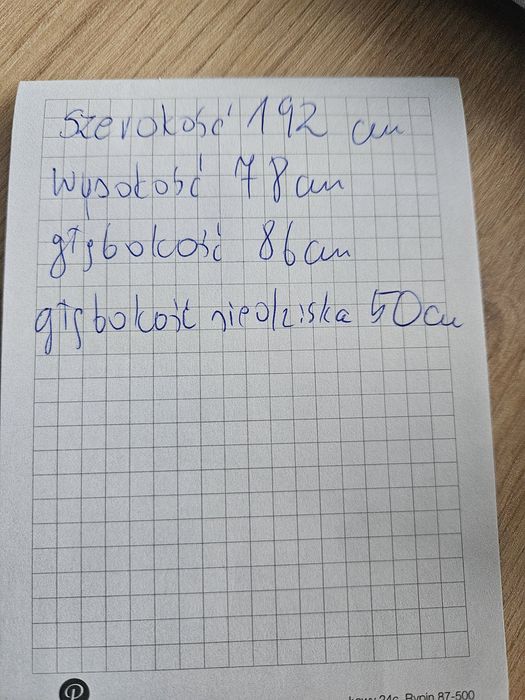 Szerokość 192 cm
Wysokość 78 cm
głębokość 86 cm
głębokość siedziska 50 cm
24c, Rypin 87-500